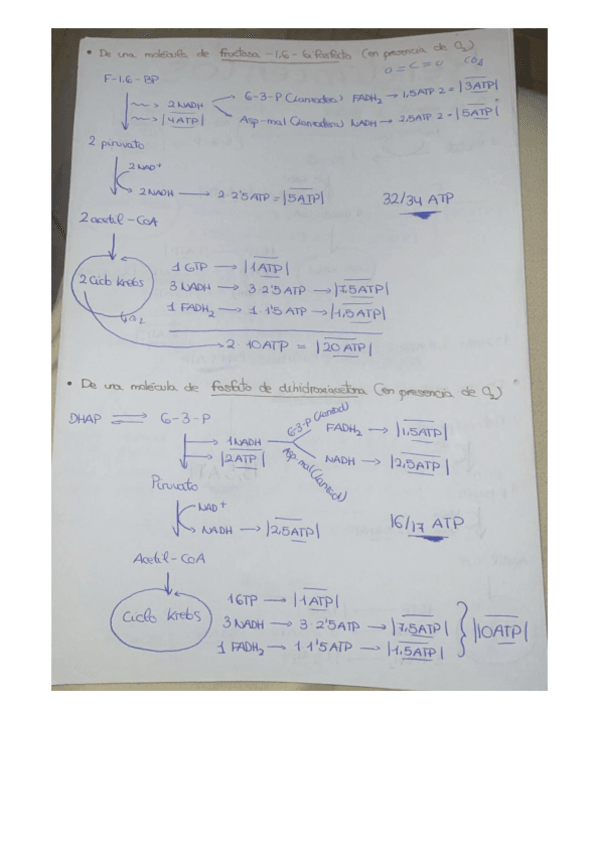 • De una molécula de fructosa -1,6- bifosfato (en presencia de O₂)
O=C=O CO₂
F-1,6-BP
2 NADH G-3-P (lanzadera) FADH₂ → 1,5 ATP · 2 = |3 ATP|
|4 ATP| Asp-mal (lanzadera) NADH → 2,5 ATP · 2 = |5 ATP|
2 piruvato
2 NAD⁺
2 NADH → 2 · 2'5 ATP = |5 ATP| 32/34 ATP
2 acetil-CoA
2 Ciclo Krebs
1 GTP → |1 ATP|
3 NADH → 3 · 2'5 ATP → |7,5 ATP|
1 FADH₂ → 1 · 1'5 ATP → |1,5 ATP|
2 · 10 ATP = |20 ATP|
• De una molécula de fosfato de dihidroxiacetona (en presencia de O₂)
DHAP ⇌ G-3-P
G-3-P (lanzad) FADH₂ → |1,5 ATP|
1 NADH
|2 ATP| Asp-mal (lanzad) NADH → |2,5 ATP|
Piruvato
NAD⁺
NADH → |2,5 ATP| 16/17 ATP
Acetil-CoA
Ciclo Krebs
1 GTP → |1 ATP|
3 NADH → 3 · 2'5 ATP → |7,5 ATP| |10 ATP|
1 FADH₂ → 1 · 1'5 ATP → |1,5 ATP|